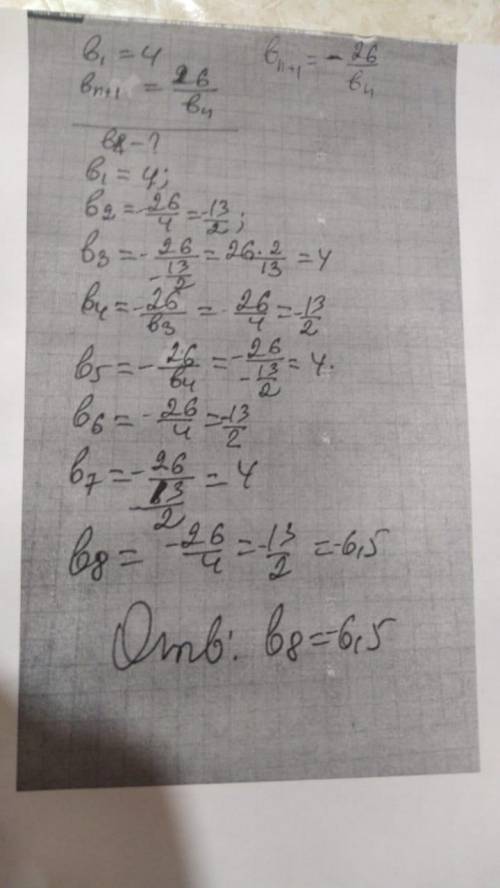 b₁ = 4 bₙ₊₁ = - 26/b₄
bₙ₊₁ = 26/b₄
b8 - ?
b₁ = 4;
b₂ = - 26/4 = -13/2;
b₃ = - 26/(-13/2) = 26·2/13 = 4
b₄ = - 26/b₃ = - 26/4 = -13/2
b₅ = - 26/b₄ = - 26/(-13/2) = 4.
b₆ = - 26/4 = -13/2
b₇ = - 26/(-13/2) = 4
b₈ = -26/4 = -13/2 = -6,5
Отв: b₈ = -6,5